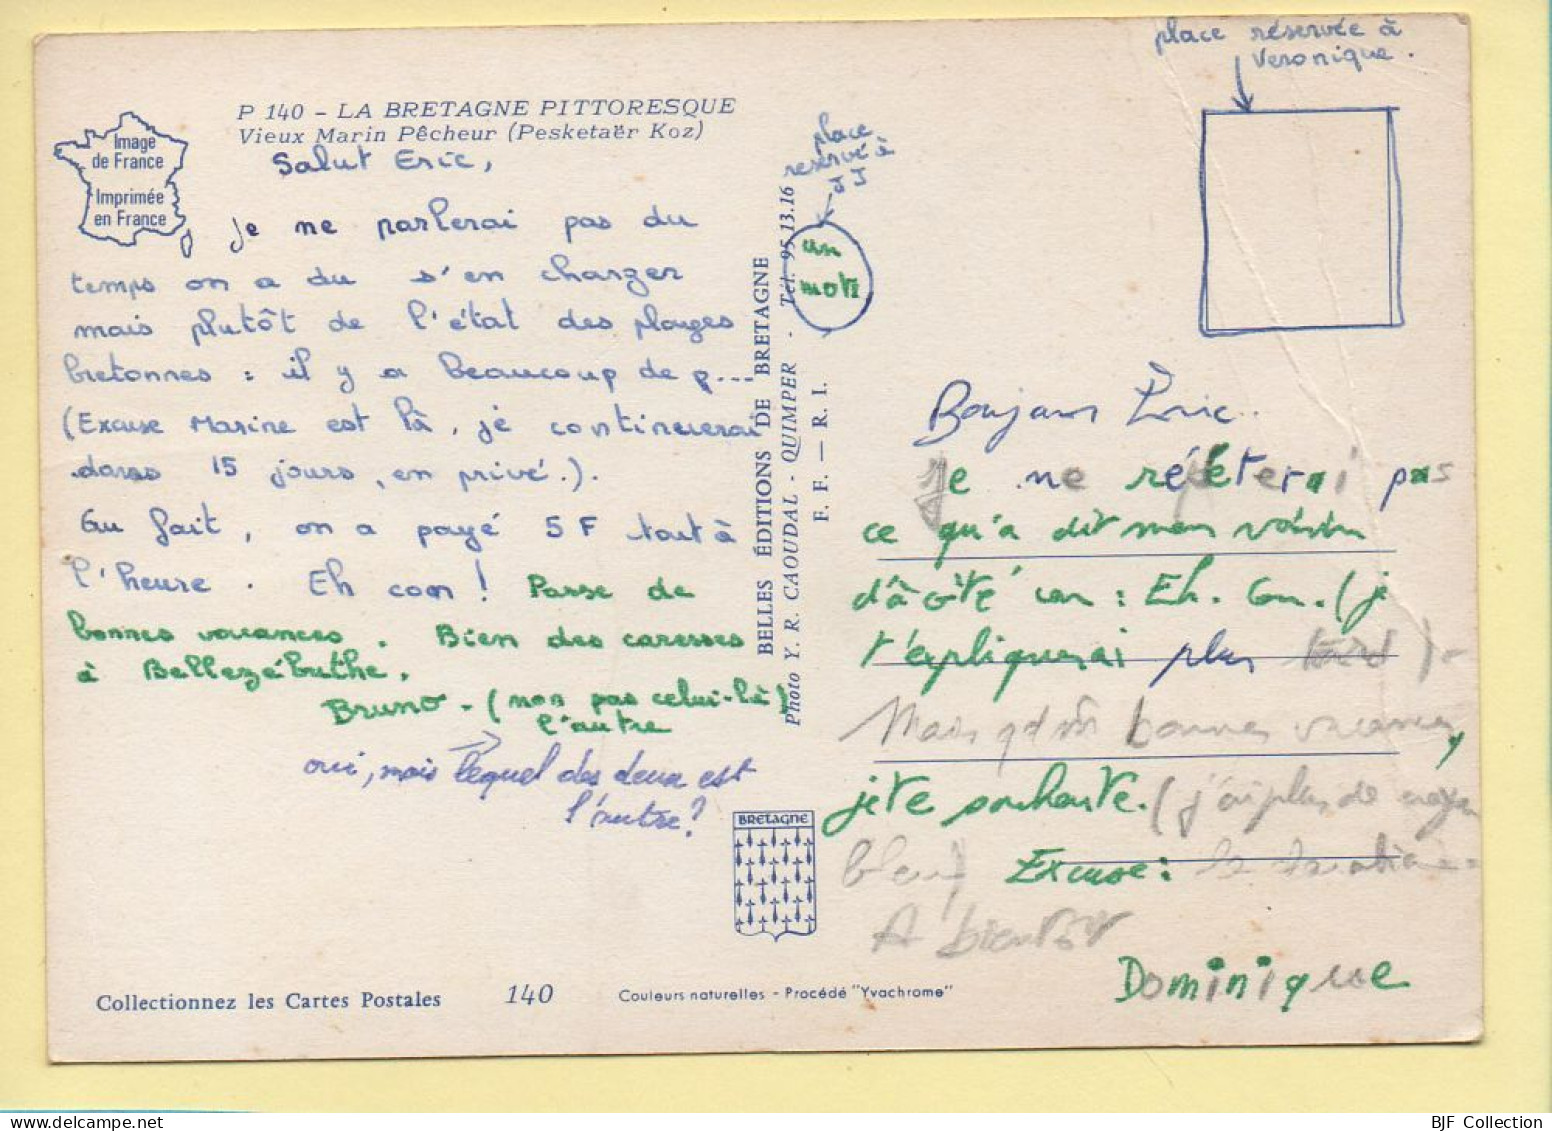 place réservée à
Veronique.
P 140 – LA BRETAGNE PITTORESQUE
Vieux Marin Pêcheur (Pesketaër Koz)
Image
de France
Imprimée
en France
Salut Eric,
Je ne parlerai pas du
temps on a du s'en charger
mais plutôt de l'état des plages
bretonnes : il y a beaucoup de p...
(Excuse Marine est là, je continuerai
dans 15 jours, en privé.).
Au fait, on a payé 5 F tout à
l'heure. Eh con ! Passe de
bonnes vacances. Bien des caresses
à Bellezébuthe.
Bruno - (non pas celui-là)
l'autre
oui, mais lequel des deux est
l'autre ?
place
reservé à
JJ
un
mot
BELLES ÉDITIONS DE BRETAGNE
Photo Y. R. CAOUDAL - QUIMPER - Tél. 95.13.16
F. F. — R. I.
Bonjour Éric..
Je ne répéterai pas
ce qu'a dit mon voisin
d'à côté con : Eh. Con. (je
t'expliquerai plus tard)
Mais qd m̂ bonnes vacances,
je te souhaite. (j'ai plus de crayon
bleu) Excuse :
A bientôt
Dominique
BRETAGNE
Collectionnez les Cartes Postales
140
Couleurs naturelles - Procédé "Yvachrome"
BJF Collection